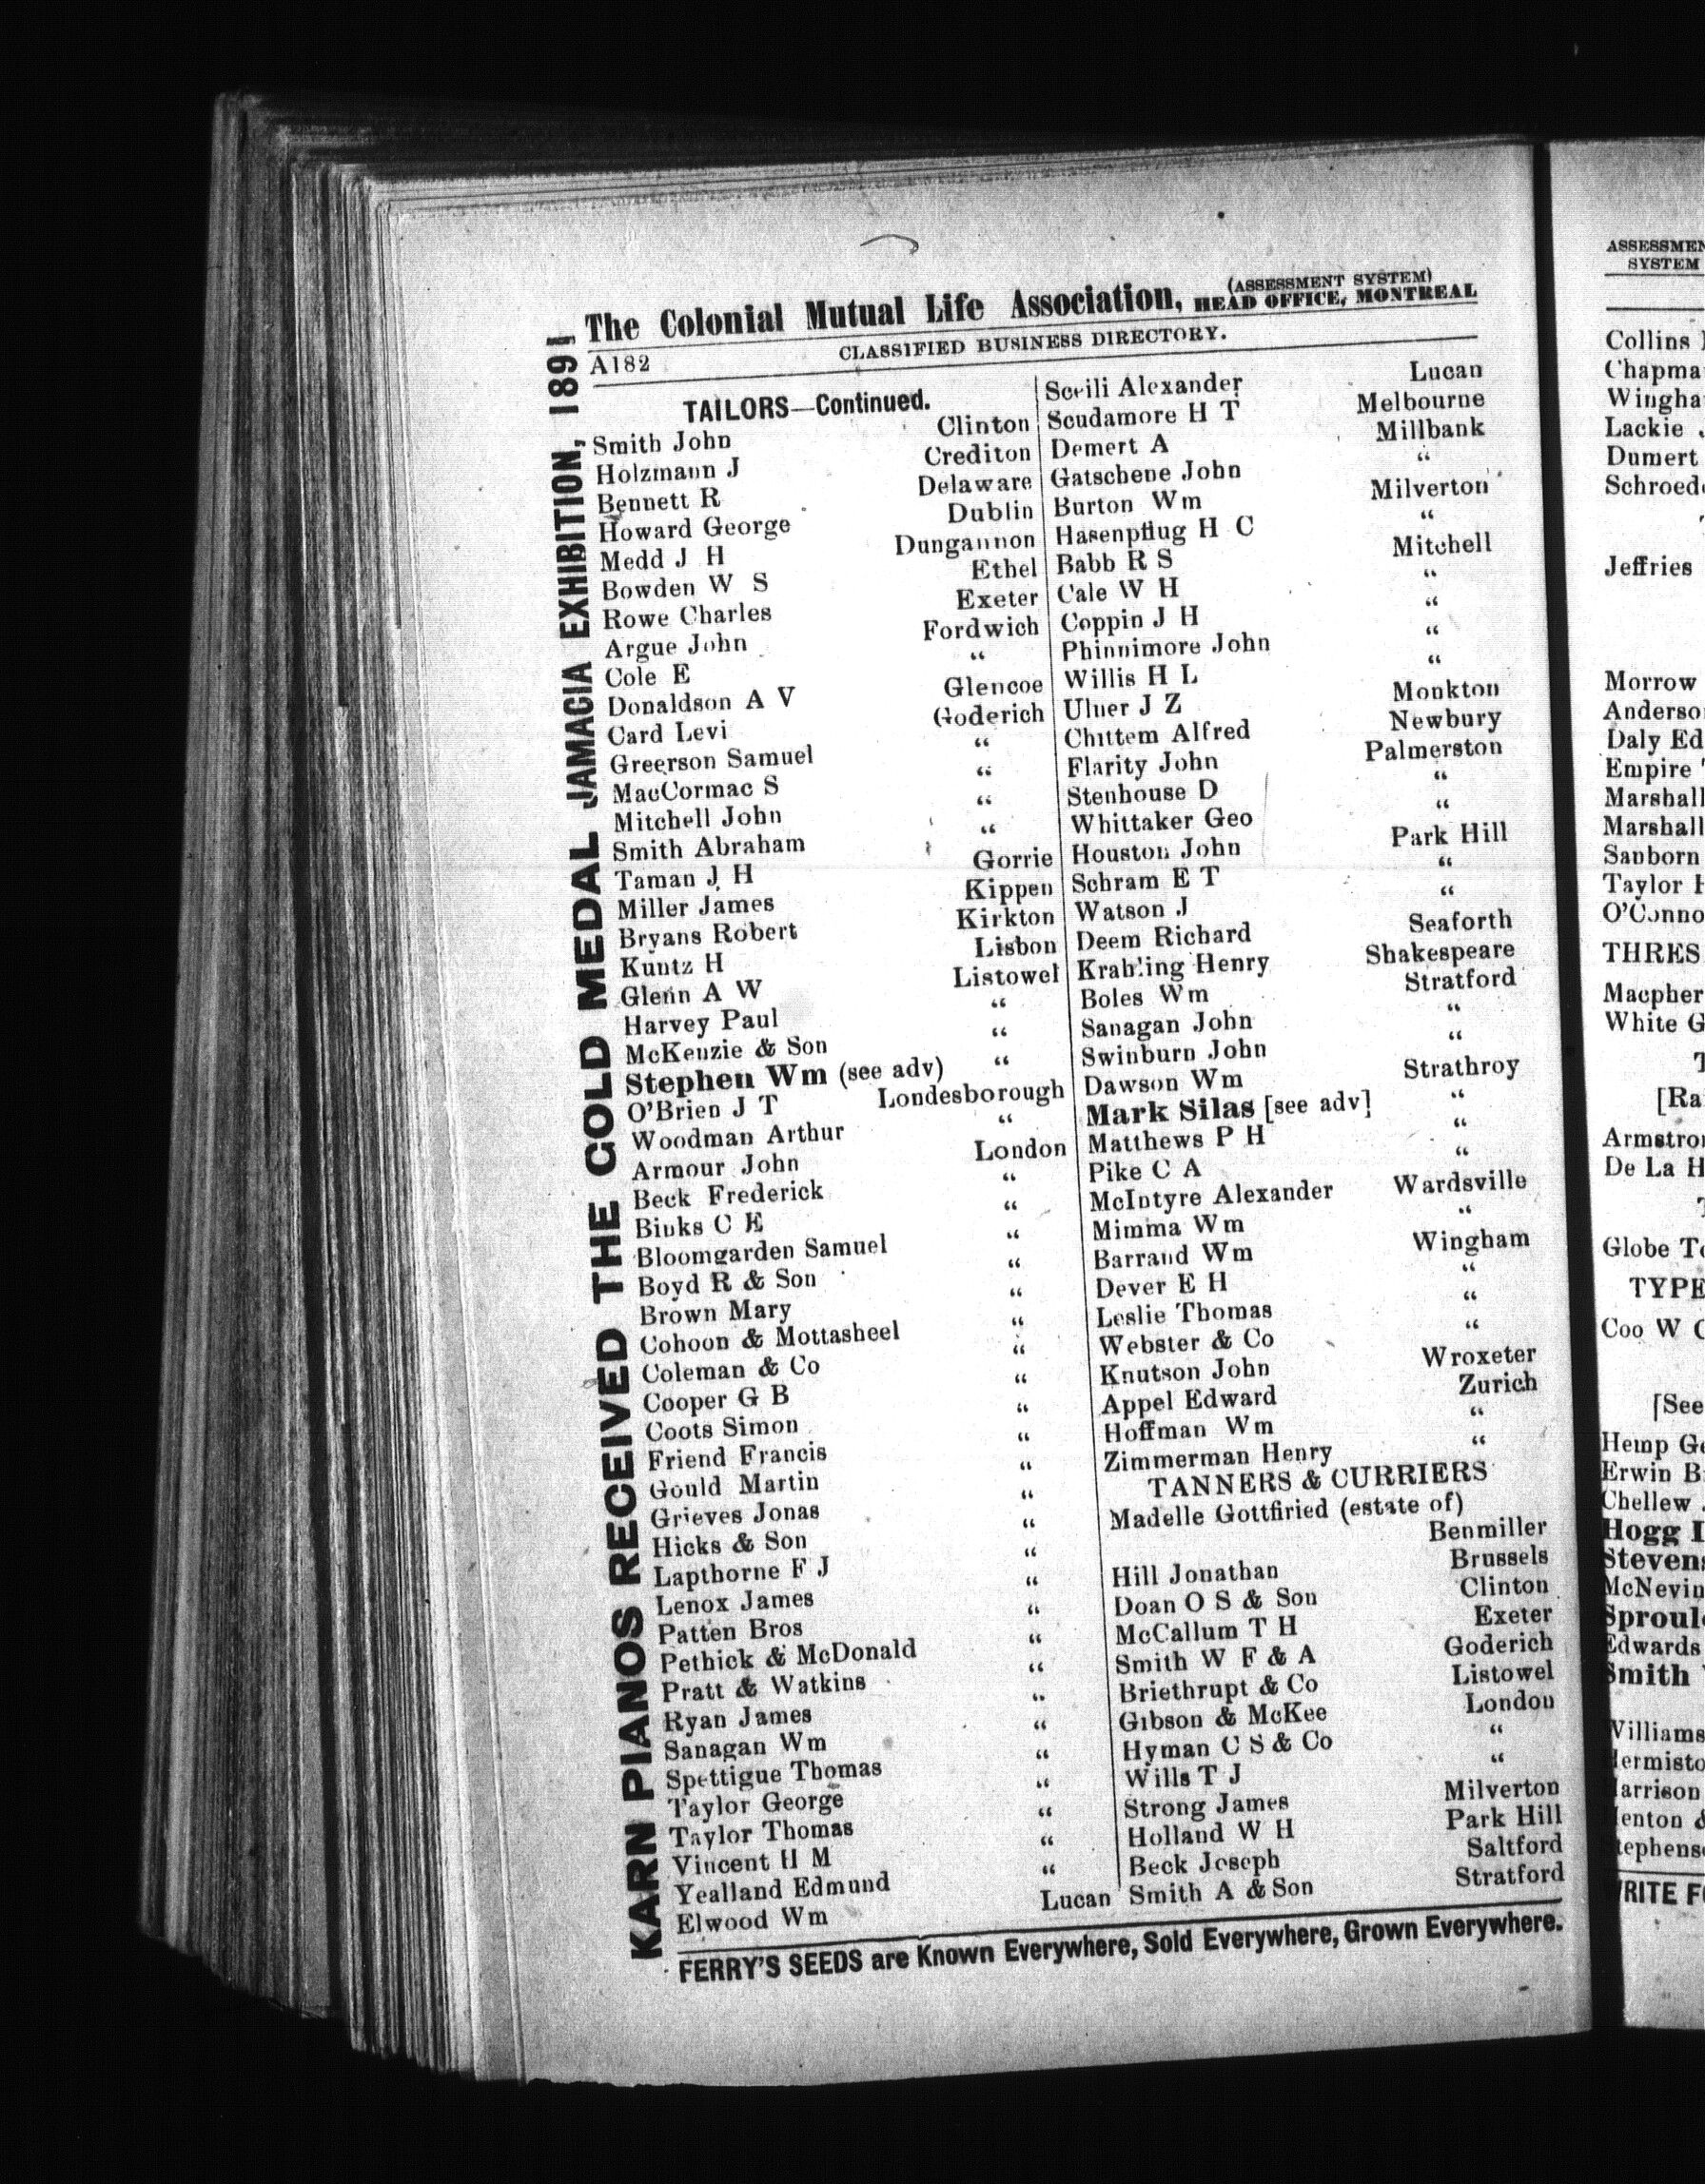 The Colonial Mutual Life Association, (ASSESSMENT SYSTEM) HEAD OFFICE, MONTREAL
A182 CLASSIFIED BUSINESS DIRECTORY.
KARN PIANOS RECEIVED THE GOLD MEDAL JAMACIA EXHIBITION, 1891
TAILORS—Continued.
Smith John Clinton
Holzmann J Crediton
Bennett R Delaware
Howard George Dublin
Medd J H Dungannon
Bowden W S Ethel
Rowe Charles Exeter
Argue John Fordwich
Cole E “
Donaldson A V Glencoe
Card Levi Goderich
Greerson Samuel “
MacCormac S “
Mitchell John “
Smith Abraham “
Taman J H Gorrie
Miller James Kippen
Bryans Robert Kirkton
Kuntz H Lisbon
Glenn A W Listowel
Harvey Paul “
McKenzie & Son “
Stephen Wm (see adv) “
O'Brien J T Londesborough
Woodman Arthur “
Armour John London
Beck Frederick “
Binks C E “
Bloomgarden Samuel “
Boyd R & Son “
Brown Mary “
Cohoon & Mottasheel “
Coleman & Co “
Cooper G B “
Coots Simon “
Friend Francis “
Gould Martin “
Grieves Jonas “
Hicks & Son “
Lapthorne F J “
Lenox James “
Patten Bros “
Pethick & McDonald “
Pratt & Watkins “
Ryan James “
Sanagan Wm “
Spettigue Thomas “
Taylor George “
Taylor Thomas “
Vincent H M “
Yealland Edmund “
Elwood Wm Lucan
Scrili Alexander Lucan
Scudamore H T Melbourne
Demert A Millbank
Gatschene John “
Burton Wm Milverton
Hasenpflug H C “
Babb R S Mitchell
Cale W H “
Coppin J H “
Phinnimore John “
Willis H L “
Ulner J Z Monkton
Chittem Alfred Newbury
Flarity John Palmerston
Stenhouse D “
Whittaker Geo “
Houston John Park Hill
Schram E T “
Watson J “
Deem Richard Seaforth
Krahling Henry Shakespeare
Boles Wm Stratford
Sanagan John “
Swinburn John “
Dawson Wm Strathroy
Mark Silas [see adv] “
Matthews P H “
Pike C A “
McIntyre Alexander Wardsville
Mimma Wm “
Barrand Wm Wingham
Dever E H “
Leslie Thomas “
Webster & Co “
Knutson John Wroxeter
Appel Edward Zurich
Hoffman Wm “
Zimmerman Henry “
TANNERS & CURRIERS
Madelle Gottfiried (estate of)
Benmiller
Hill Jonathan Brussels
Doan O S & Son Clinton
McCallum T H Exeter
Smith W F & A Goderich
Briethrupt & Co Listowel
Gibson & McKee London
Hyman C S & Co “
Wills T J “
Strong James Milverton
Holland W H Park Hill
Beck Joseph Saltford
Smith A & Son Stratford
FERRY'S SEEDS are Known Everywhere, Sold Everywhere, Grown Everywhere.
SYSTEM
Collins
Lackie
Dumert
Jeffries
Morrow
Daly Ed
Empire
Marshall
Marshall
Sanborn
Taylor
White G
[Ra
De La H
Globe
TYPE
Coo W
[See
Hemp
Erwin
Chellew
Hogg
Edwards